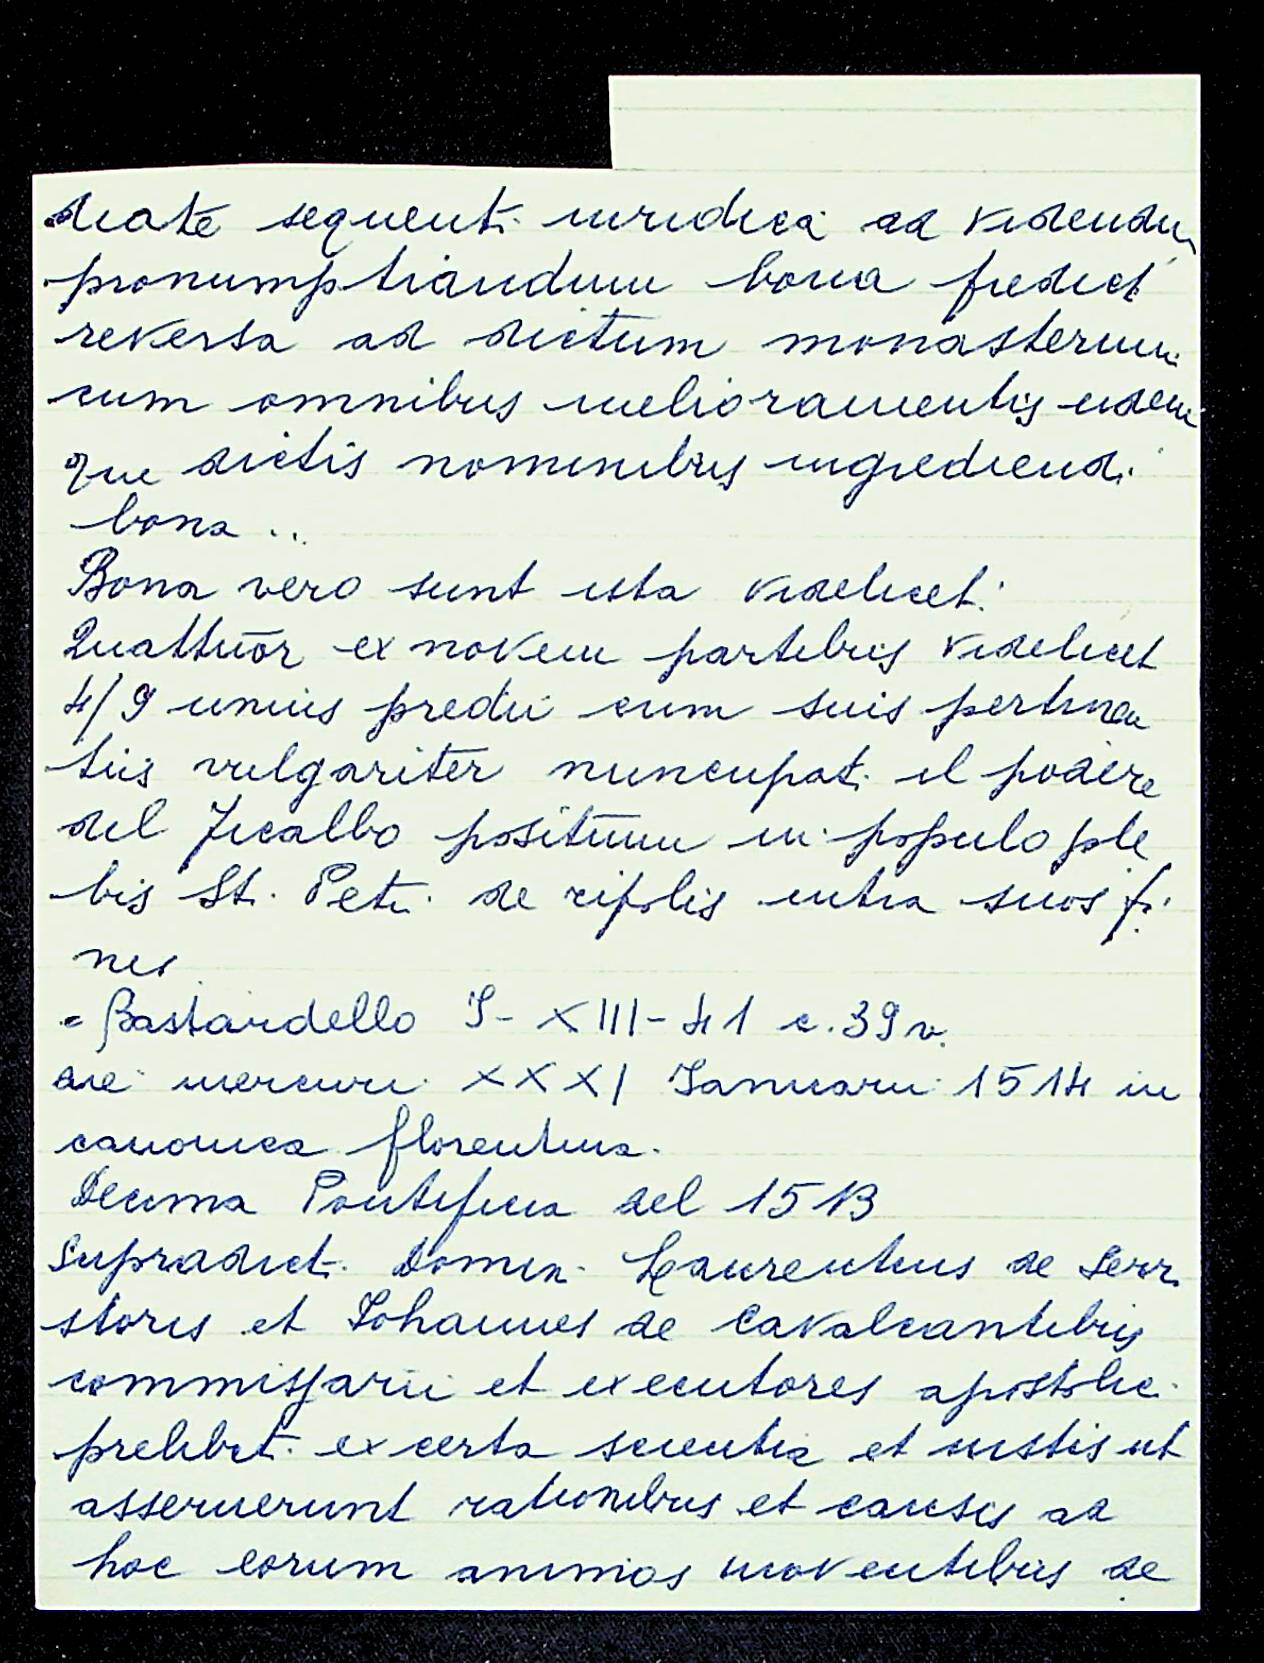 diate sequent. iuridica ad videndu
pronumptiandum bona predict
reversa ad dictum monasterium
cum omnibus melioramentis eidem
que dictis nominibus ingrediend.
bona ..
Bona vero sunt ista videlicet:
Quattuor ex novem partibus videlicet
4/9 unius predii cum suis pertinen
tiis vulgariter nuncupat. il podere
del Ficalbo positum in populo ple
bis St. Petri de ripolis intra suos fi
nes
= Bastardello I - XIII - 41 c. 39 v.
die mercurii XXXI Ianuarii 1514 in
canonica florentina.
Decima Pontificia del 1513
Supradict. Domin. Laurentius de Serr
storis et Iohannes de Cavalcantibus
commissarii et executores apostolic.
prelibat. ex certa scientia et iustis ut
asseruerunt rationibus et causis ad
hoc eorum animos moventibus de